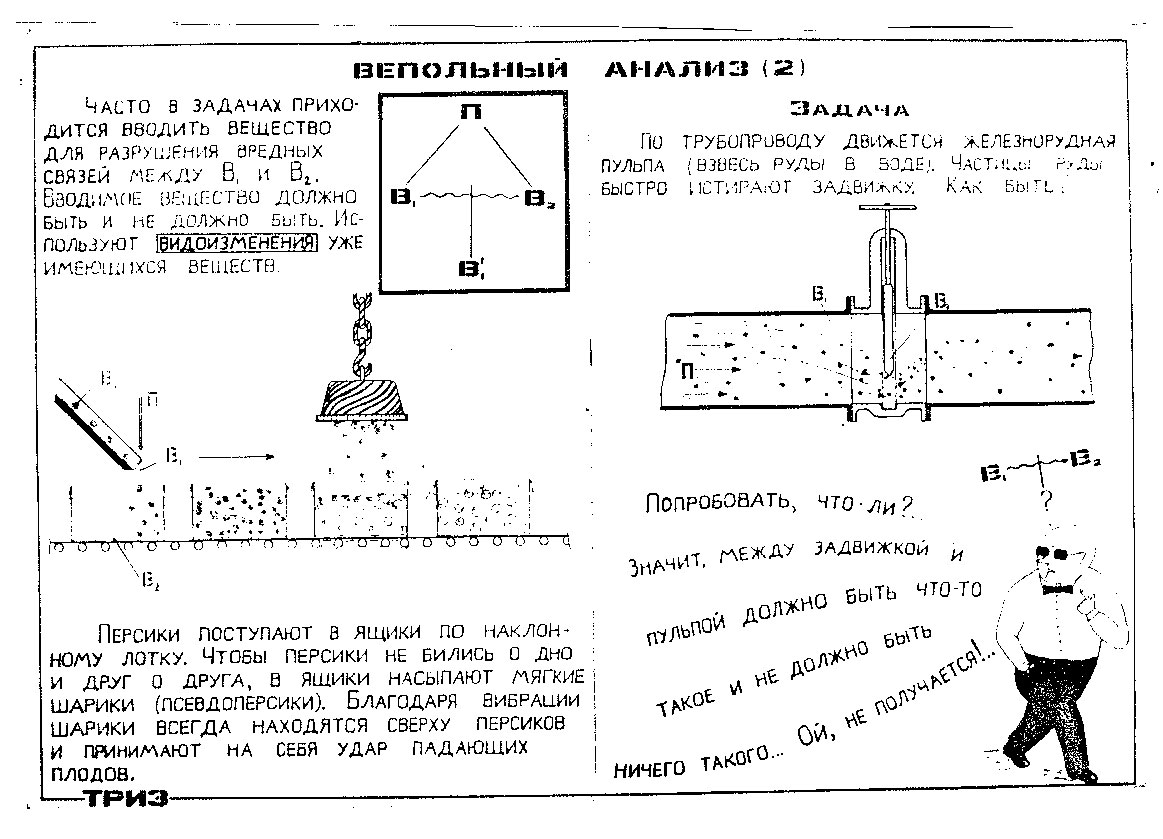 ВЕПОЛЬНЫЙ АНАЛИЗ (2)
ЧАСТО В ЗАДАЧАХ ПРИХО-
ДИТСЯ ВВОДИТЬ ВЕЩЕСТВО
ДЛЯ РАЗРУШЕНИЯ ВРЕДНЫХ
СВЯЗЕЙ МЕЖДУ В₁ И В₂.
ВВОДИМОЕ ВЕЩЕСТВО ДОЛЖНО
БЫТЬ И НЕ ДОЛЖНО БЫТЬ. ИС-
ПОЛЬЗУЮТ ВИДОИЗМЕНЕНИЯ УЖЕ
ИМЕЮЩИХСЯ ВЕЩЕСТВ.
П
В₁ В₂
В₁'
В
П
В₁
В₂
ПЕРСИКИ ПОСТУПАЮТ В ЯЩИКИ ПО НАКЛОН-
НОМУ ЛОТКУ. ЧТОБЫ ПЕРСИКИ НЕ БИЛИСЬ О ДНО
И ДРУГ О ДРУГА, В ЯЩИКИ НАСЫПАЮТ МЯГКИЕ
ШАРИКИ (ПСЕВДОПЕРСИКИ). БЛАГОДАРЯ ВИБРАЦИИ
ШАРИКИ ВСЕГДА НАХОДЯТСЯ СВЕРХУ ПЕРСИКОВ
И ПРИНИМАЮТ НА СЕБЯ УДАР ПАДАЮЩИХ
ПЛОДОВ.
ТРИЗ
ЗАДАЧА
ПО ТРУБОПРОВОДУ ДВИЖЕТСЯ ЖЕЛЕЗНОРУДНАЯ
ПУЛЬПА (ВЗВЕСЬ РУДЫ В ВОДЕ). ЧАСТИЦЫ РУДЫ
БЫСТРО ИСТИРАЮТ ЗАДВИЖКУ. КАК БЫТЬ?
В В
П
В₁ В₂
?
ПОПРОБОВАТЬ, ЧТО-ЛИ?
ЗНАЧИТ, МЕЖДУ ЗАДВИЖКОЙ И
ПУЛЬПОЙ ДОЛЖНО БЫТЬ ЧТО-ТО
ТАКОЕ И НЕ ДОЛЖНО БЫТЬ
НИЧЕГО ТАКОГО... ОЙ, НЕ ПОЛУЧАЕТСЯ!...